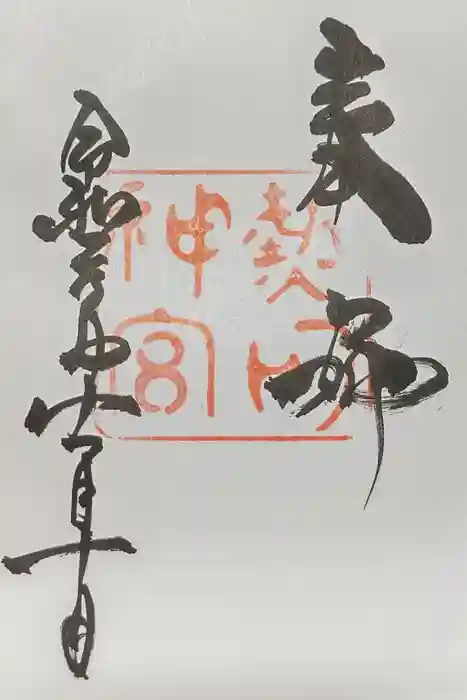 奉拝
熱田
神宮
令和 年十 月十日